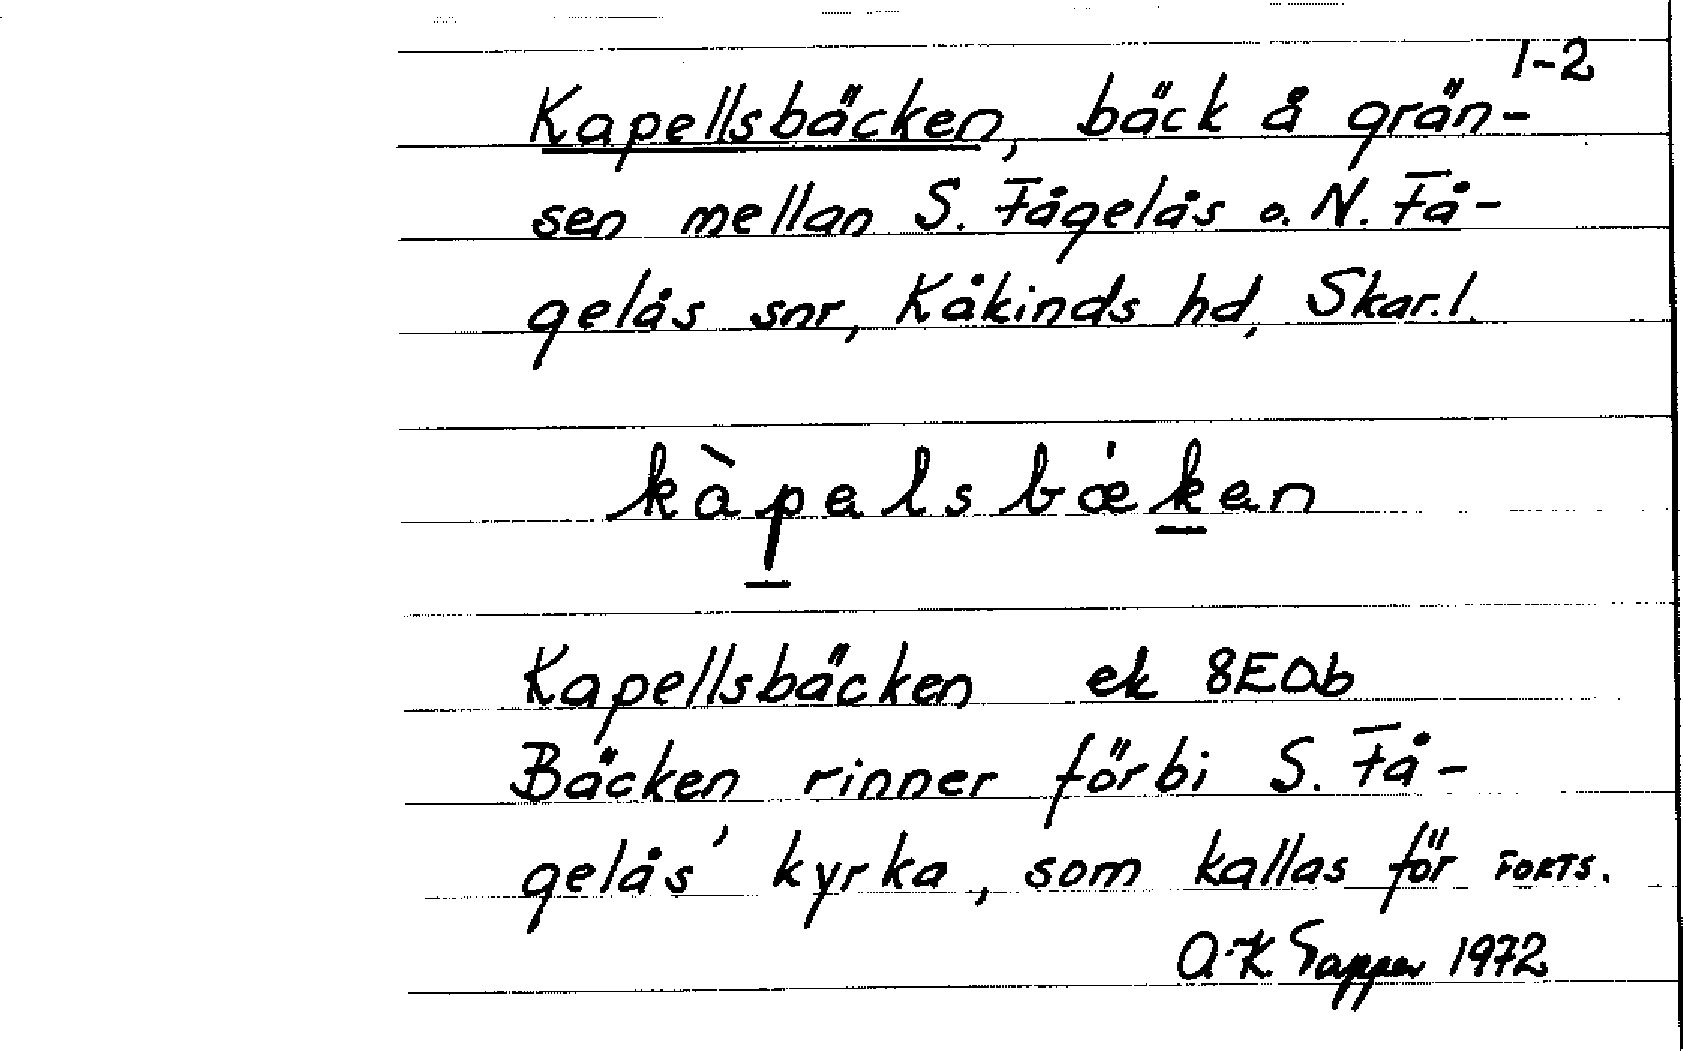 1-2
Kapellsbäcken, bäck å grän-
sen mellan S. Fågelås o. N. Få-
gelås snr, Kåkinds hd, Skar.l.
kàpelsbæ̍ken
Kapellsbäcken ek 8E0b
Bäcken rinner förbi S. Få-
gelås' kyrka, som kallas för FORTS.
A-K Tapper 1972